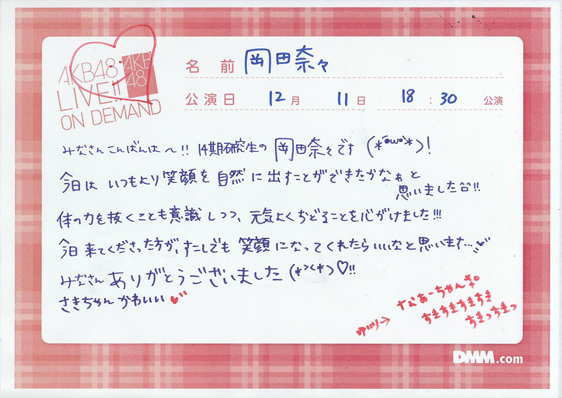 AKB48
AKB
48
LIVE!!
ON DEMAND
名 前 岡田奈々
公演日 12月 11日 18:30 公演
みなさんこんばんは〜!! 14期研究生の岡田奈々です (*´ω`*)!
今日は いつもより 笑顔を 自然に 出すことができたかなぁと
思いました!!
体の力を抜くことも意識しつつ、元気よくおどることを心がけました!!!
今日来てくださった方が、すこしでも 笑顔になってくれたらいいなと思います…
みなさん ありがとうございました (*><*)♡!!
さきちゃん かわいい
ゆいり→ なぁーちゃん
すきすきすきすき
すきっすきっ
DMM.com